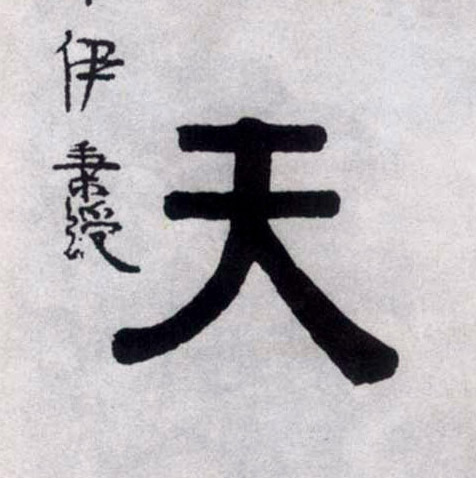 天
伊秉綬